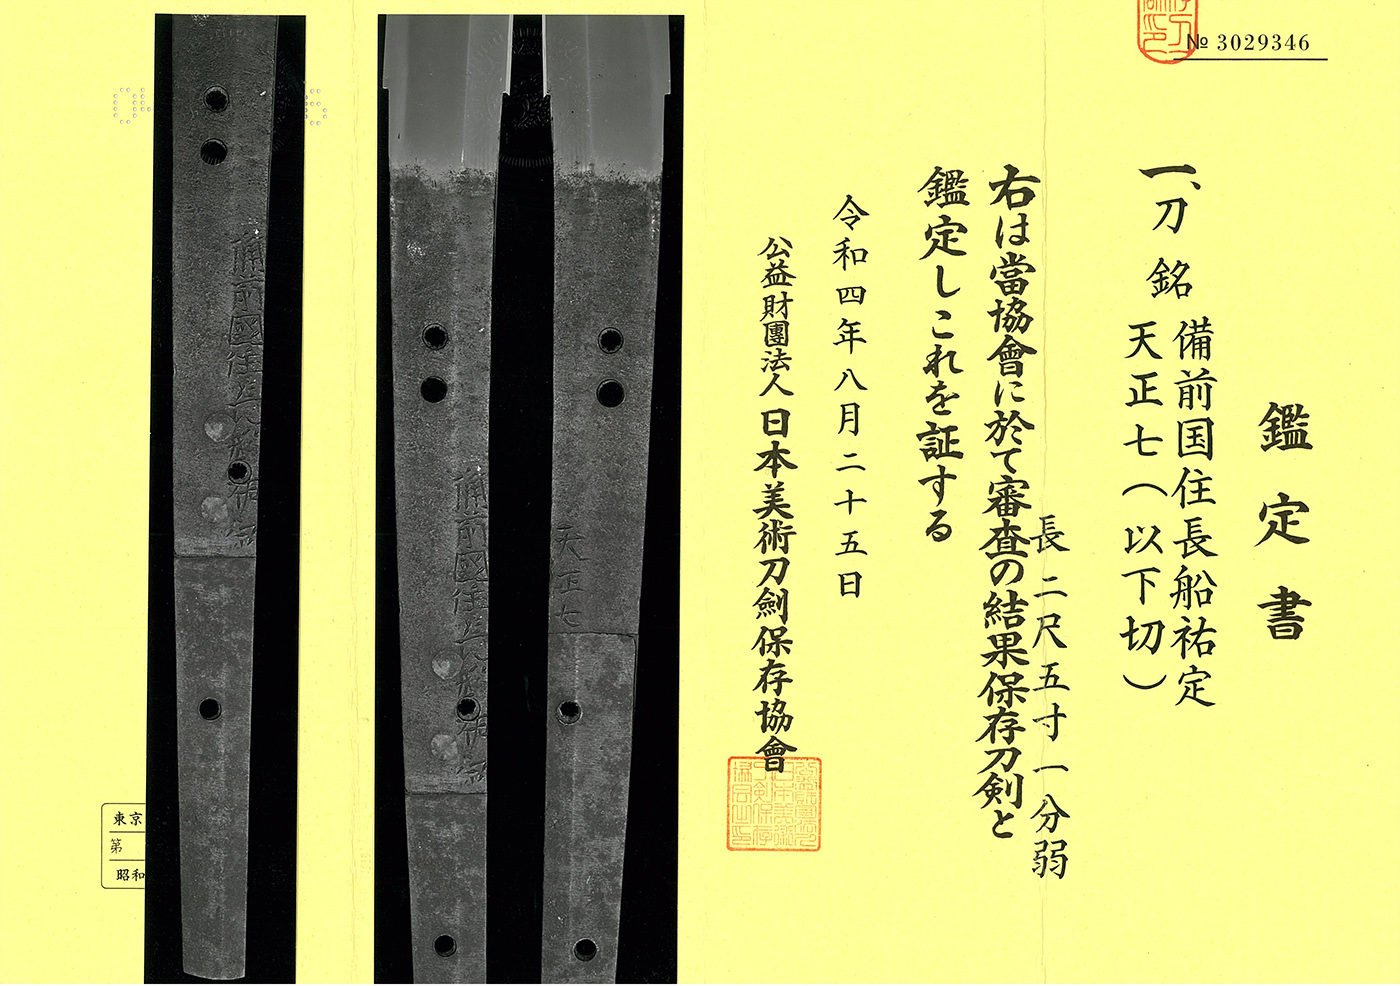 № 3029346
鑑定書
一、刀 銘 備前国住長船祐定
天正七(以下切)
長二尺五寸一分弱
右は當協會に於て審査の結果保存刀剣と
鑑定しこれを証する
令和四年八月二十五日
公益財團法人日本美術刀劍保存協會
天正七
備前國住長船祐定
備前國住長船祐定
東京
第
昭和